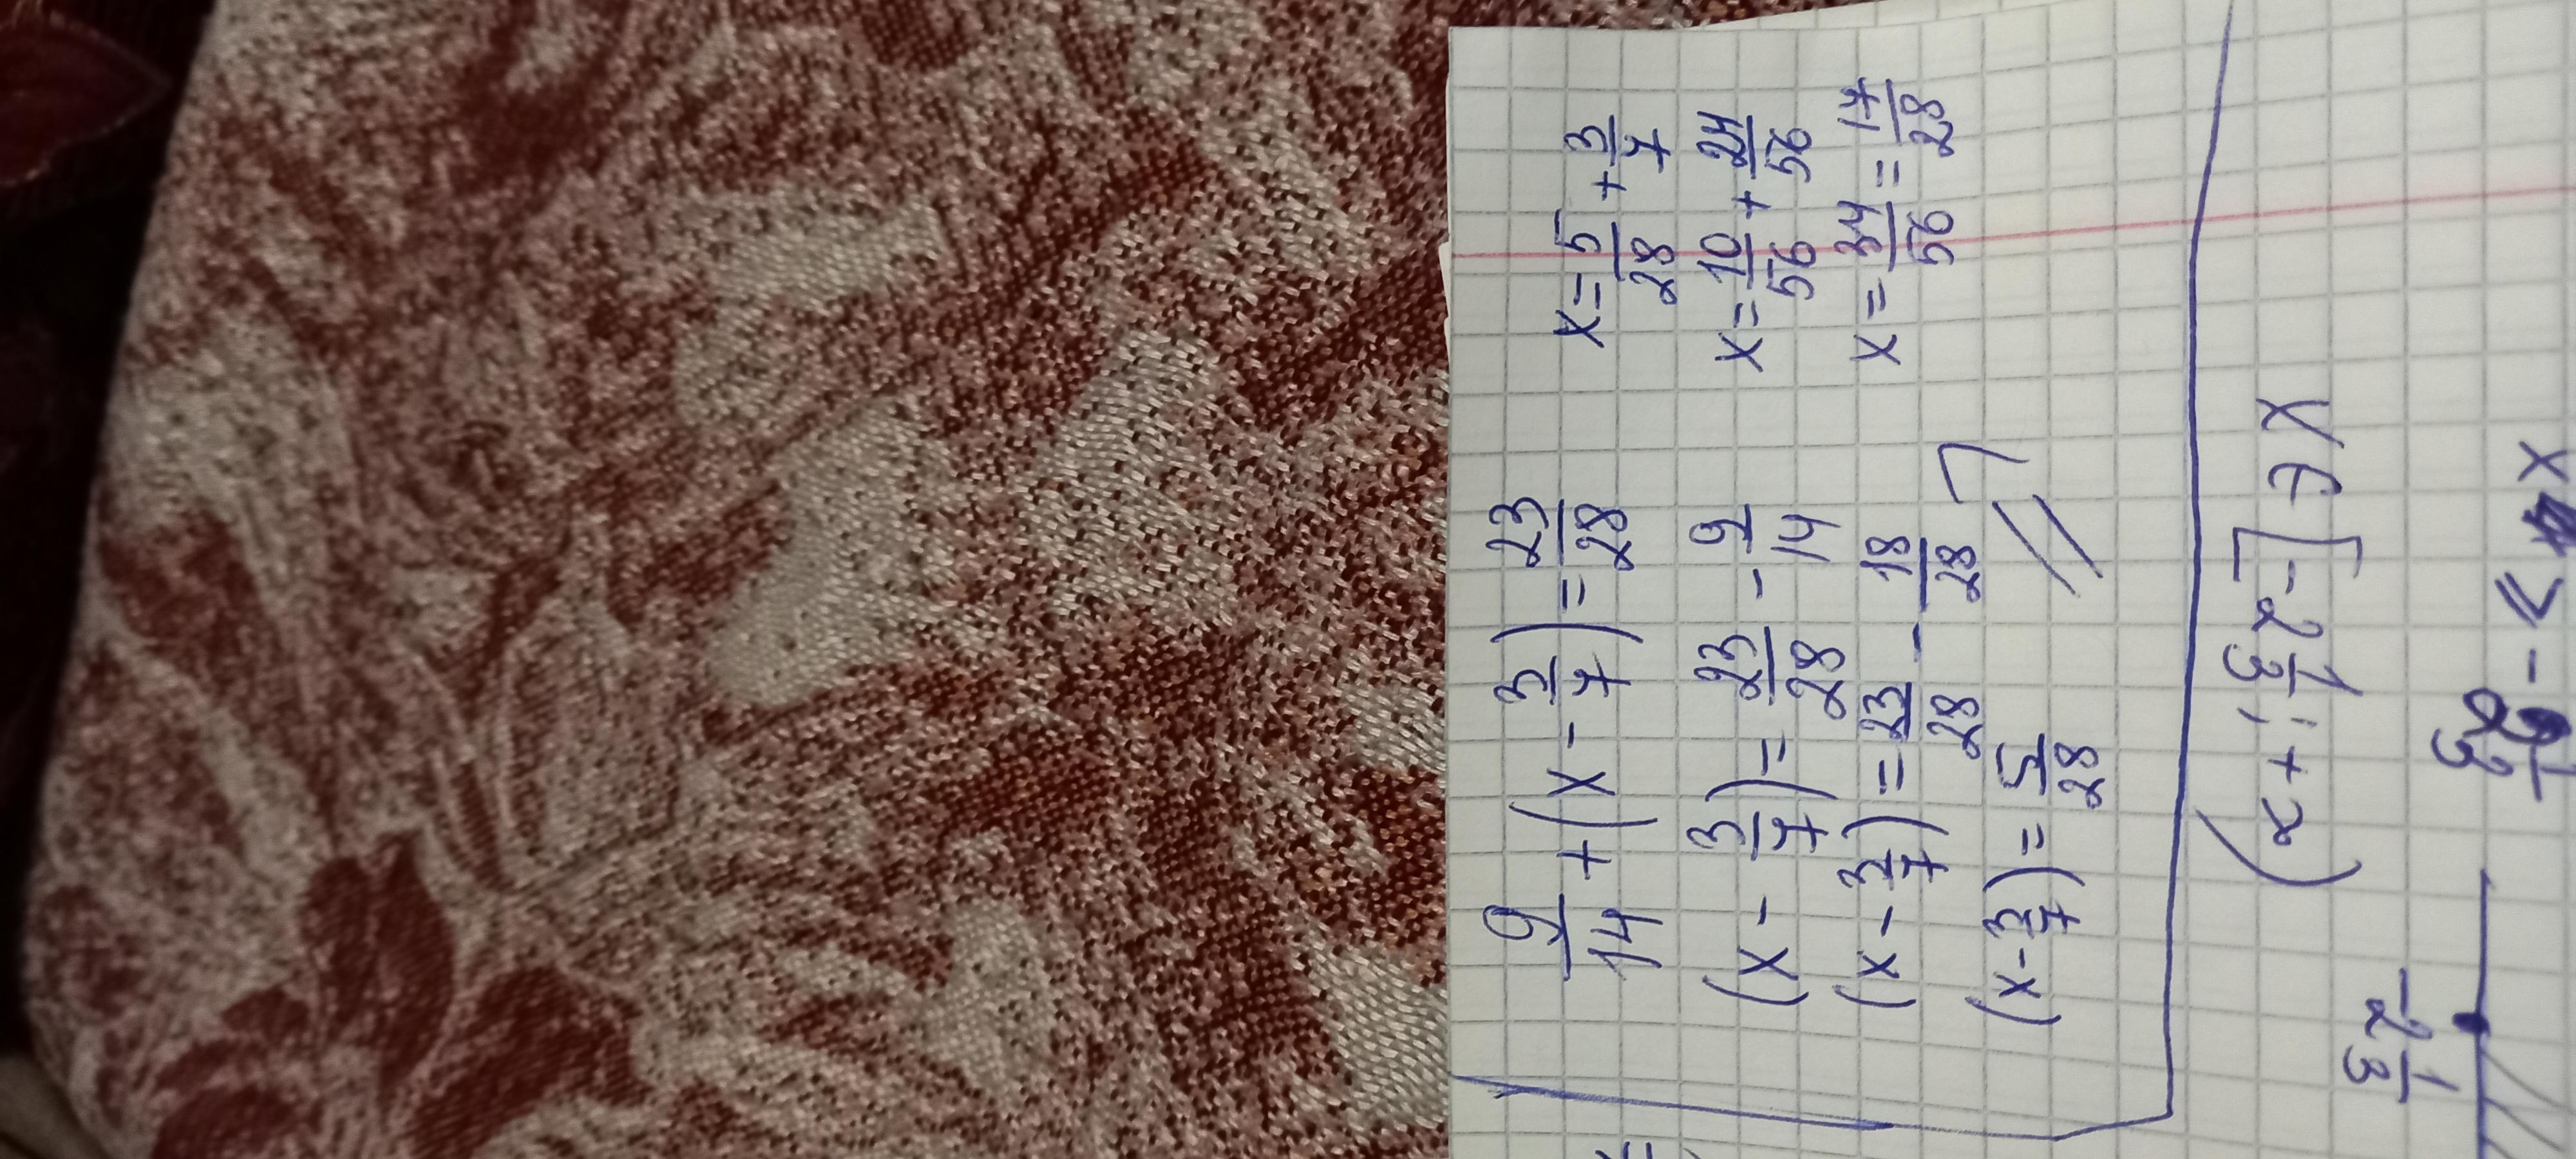 9/14 + (x - 3/7) = 23/28
(x - 3/7) = 23/28 - 9/14
(x - 3/7) = 23/28 - 18/28
(x - 3/7) = 5/28
x = 5/28 + 3/7
x = 10/56 + 24/56
x = 34/56 = 17/28
x ⩾ -2 1/3
-2 1/3
x ∈ [-2 1/3; +∞)